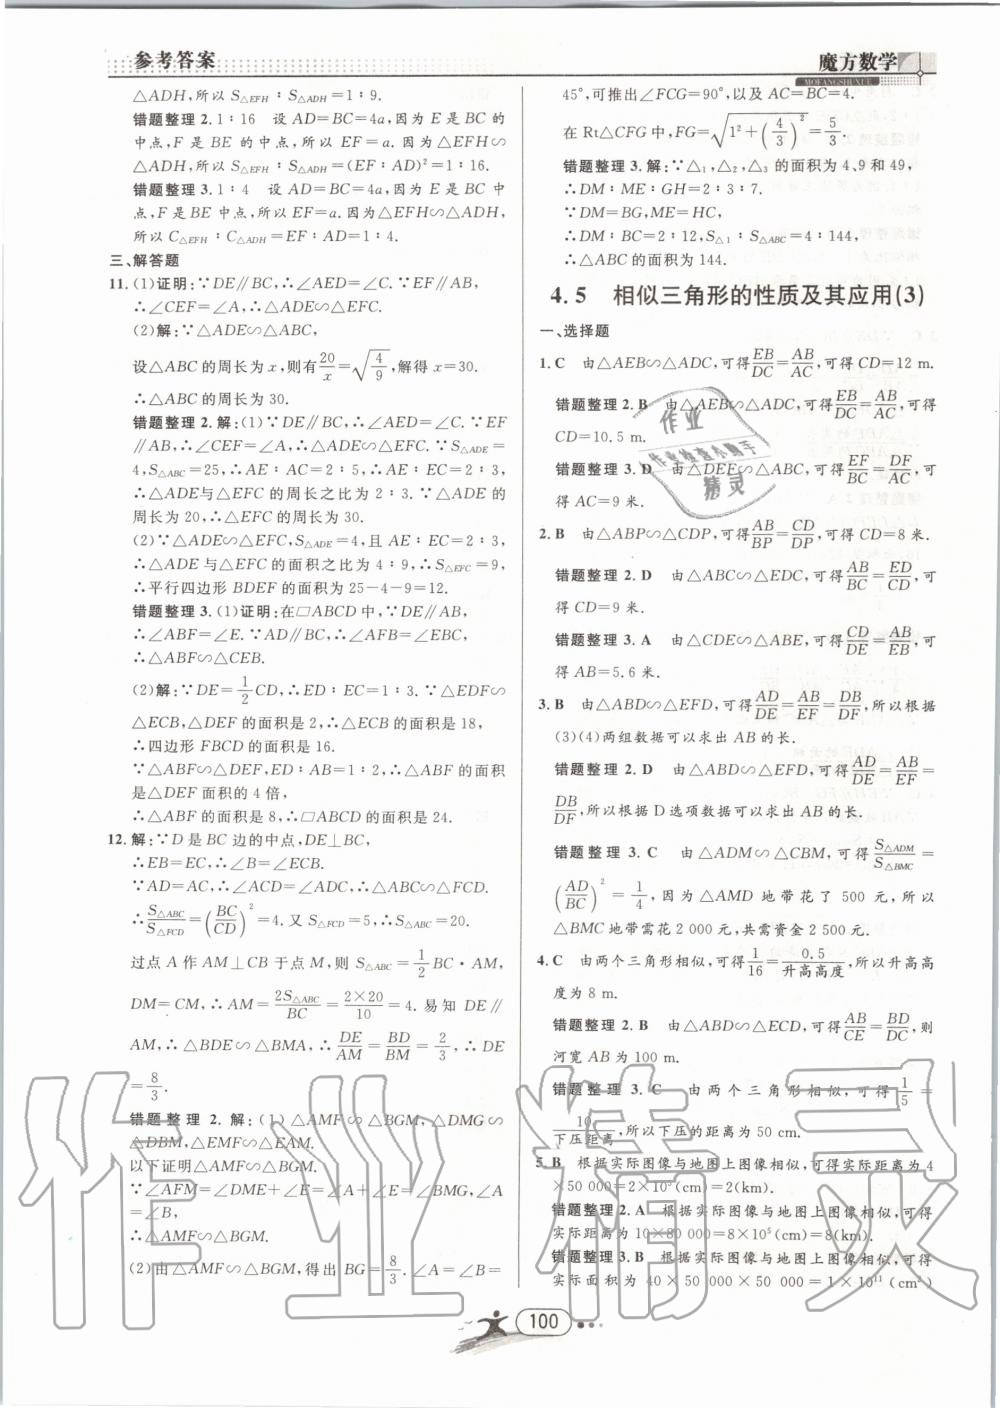 参考答案
魔方数学
MOFANGSHUXUE
△ADH,所以 S△EFH∶S△ADH=1∶9.
错题整理 2.1∶16 设 AD=BC=4a,因为 E 是 BC 的
中点,F 是 BE 的中点,所以 EF=a.因为△EFH∽
△ADH,所以 S△EFH∶S△ADH=(EF∶AD)²=1∶16.
错题整理 3.1∶4 设 AD=BC=4a,因为 E 是 BC 中
点,F 是 BE 中点,所以 EF=a.因为△EFH∽△ADH,
所以 C△EFH∶C△ADH=EF∶AD=1∶4.
三、解答题
11.(1)证明:∵DE∥BC,∴∠AED=∠C.∵EF∥AB,
∴∠CEF=∠A,∴△ADE∽△EFC.
(2)解:∵△ADE∽△ABC,
设△ABC 的周长为 x,则有20/x=√(4/9),解得 x=30.
∴△ABC 的周长为 30.
错题整理 2.解:(1)∵DE∥BC,∴∠AED=∠C.∵EF
∥AB,∴∠CEF=∠A,∴△ADE∽△EFC.∵S△ADE=
4,S△ABC=25,∴AE∶AC=2∶5,∴AE∶EC=2∶3,
∴△ADE与△EFC 的周长之比为 2∶3.∵△ADE 的
周长为 20,∴△EFC 的周长为 30.
(2)∵△ADE∽△EFC,S△ADE=4,且 AE∶EC=2∶3,
∴△ADE 与△EFC 的面积之比为 4∶9,∴S△EFC=9,
∴平行四边形 BDEF 的面积为 25-4-9=12.
错题整理 3.(1)证明:在□ABCD 中,∵DE∥AB,
∴∠ABF=∠E.∵AD∥BC,∴∠AFB=∠EBC,
∴△ABF∽△CEB.
(2)解:∵DE=1/2CD,∴ED∶EC=1∶3,∵△EDF∽
△ECB,△DEF 的面积是 2,∴△ECB 的面积是 18,
∴四边形 FBCD 的面积是 16.
∵△ABF∽△DEF,ED∶AB=1∶2,∴△ABF 的面积
是△DEF 面积的 4 倍,
∴△ABF 的面积是 8,∴□ABCD 的面积是 24.
12.解:∵D 是 BC 边的中点,DE⊥BC,
∴EB=EC,∴∠B=∠ECB.
∵AD=AC,∴∠ACD=∠ADC,∴△ABC∽△FCD.
∴S△ABC/S△FCD=(BC/CD)²=4.又 S△FCD=5,∴S△ABC=20.
过点 A 作 AM⊥CB 于点 M,则 S△ABC=1/2BC·AM,
DM=CM,∴AM=2S△ABC/BC=2×20/10=4.易知 DE∥
AM,∴△BDE∽△BMA,∴DE/AM=BD/BM=2/3,∴DE
=8/3.
错题整理 2.解:(1)△AMF∽△BGM,△DMG∽
△DBM,△EMF∽△EAM.
以下证明△AMF∽△BGM.
∵∠AFM=∠DME+∠E=∠A+∠E=∠BMG,∠A
=∠B,
∴△AMF∽△BGM.
(2)由△AMF∽△BGM,得出 BG=8/3.∠A=∠B=
45°,可推出∠FCG=90°,以及 AC=BC=4.
在 Rt△CFG 中,FG=√(1²+(4/3)²)=5/3.
错题整理 3.解:∵△1,△2,△3 的面积为 4、9 和 49,
∴DM∶ME∶GH=2∶3∶7.
∵DM=BG,ME=HC,
∴DM∶BC=2∶12,S△1∶S△ABC=4∶144,
∴△ABC 的面积为 144.
4.5 相似三角形的性质及其应用(3)
一、选择题
1.C 由△AEB∽△ADC,可得EB/DC=AB/AC,可得 CD=12 m.
错题整理 2.B 由△AEB∽△ADC,可得EB/DC=AB/AC,可得
CD=10.5 m.
错题整理 3.D 由△DEF∽△ABC,可得EF/BC=DF/AC,可
得 AC=9 米.
2.B 由△ABP∽△CDP,可得AB/BP=CD/DP,可得 CD=8 米.
错题整理 2.D 由△ABC∽△EDC,可得AB/BC=ED/CD,可
得 CD=9 米.
错题整理 3.A 由△CDE∽△ABE,可得CD/DE=AB/EB,可
得 AB=5.6 米.
3.B 由△ABD∽△EFD,可得AD/DE=AB/EF=DB/DF,所以根据
(3)(4)两组数据可以求出 AB 的长.
错题整理 2.D 由△ABD∽△EFD,可得AD/DE=AB/EF=
DB/DF,所以根据 D 选项数据可以求出 AB 的长.
错题整理 3.C 由△ADM∽△CBM,可得S△ADM/S△BMC=
(AD/BC)²=1/4,因为△AMD 地带花了 500 元,所以
△BMC 地带需花 2 000 元,共需资金 2 500 元.
4.C 由两个三角形相似,可得1/16=0.5/升高高度,所以升高高
度为 8 m.
错题整理 2.B 由△ABD∽△ECD,可得AB/CE=BD/DC,则
河宽 AB 为 100 m.
错题整理 3.C 由两个三角形相似,可得1/5=
10/下压距离,所以下压的距离为 50 cm.
5.B 根据实际图像与地图上图像相似,可得实际距离为 4
×50 000=2×10⁵(cm)=2(km).
错题整理 2.A 根据实际图像与地图上图像相似,可得
实际距离为 10×80 000=8×10⁵(cm)=8(km).
错题整理 3.B 根据实际图像与地图上图像相似,可得
实际面积为 40×50 000×50 000=1×10¹¹(cm²)
作业
作业检查小助手
精灵
作业精灵
100